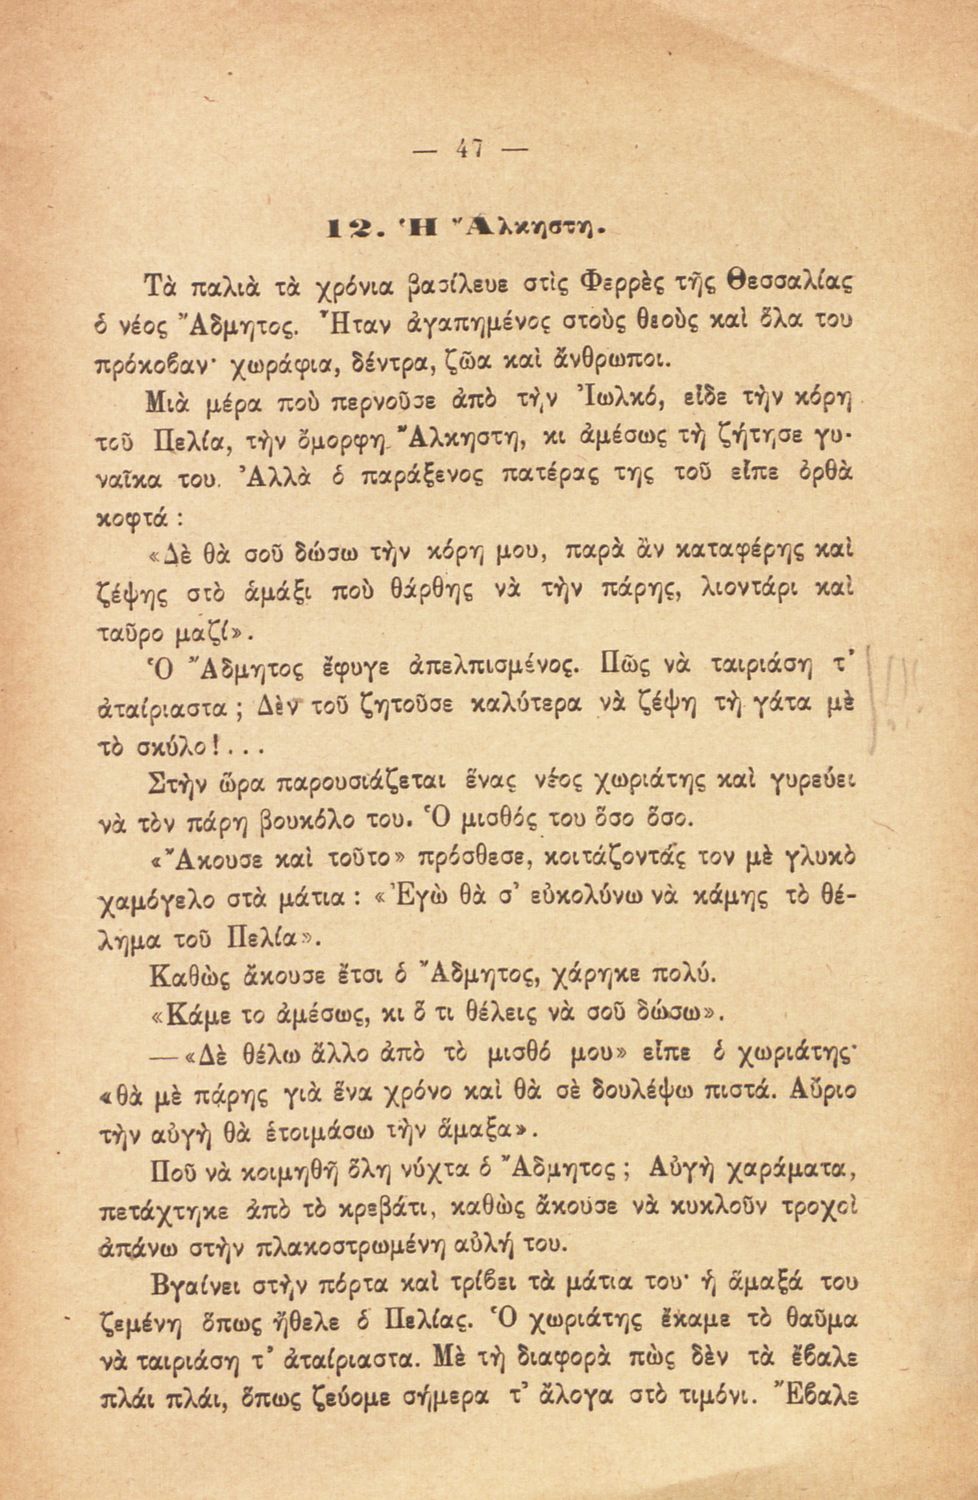 — 47 —
12. Ἡ Ἄλκηστη.
Τὰ παλιὰ τὰ χρόνια βασίλευε στὶς Φερρὲς τῆς Θεσσαλίας
ὁ νέος Ἄδμητος. Ἦταν ἀγαπημένος στοὺς θεοὺς καὶ ὅλα του
πρόκοβαν· χωράφια, δέντρα, ζῶα καὶ ἄνθρωποι.
Μιὰ μέρα ποὺ περνοῦσε ἀπὸ τὴν Ἰωλκό, εἶδε τὴν κόρη
τοῦ Πελία, τὴν ὄμορφη Ἄλκηστη, κι ἀμέσως τὴ ζήτησε γυ-
ναῖκα του. Ἀλλὰ ὁ παράξενος πατέρας της τοῦ εἶπε ὀρθὰ
κοφτά :
«Δὲ θὰ σοῦ δώσω τὴν κόρη μου, παρὰ ἂν καταφέρης καὶ
ζέψης στὸ ἁμάξι ποὺ θάρθης νὰ τὴν πάρης, λιοντάρι καὶ
ταῦρο μαζί».
Ὁ Ἄδμητος ἔφυγε ἀπελπισμένος. Πῶς νὰ ταιριάση τ'
ἀταίριαστα ; Δὲν τοῦ ζητοῦσε καλύτερα νὰ ζέψη τὴ γάτα μὲ
τὸ σκύλο!...
Στὴν ὥρα παρουσιάζεται ἕνας νέος χωριάτης καὶ γυρεύει
νὰ τὸν πάρη βουκόλο του. Ὁ μισθός του ὅσο ὅσο.
«Ἄκουσε καὶ τοῦτο» πρόσθεσε, κοιτάζοντάς τον μὲ γλυκὸ
χαμόγελο στὰ μάτια : «Ἐγὼ θὰ σ' εὐκολύνω νὰ κάμης τὸ θέ-
λημα τοῦ Πελία».
Καθὼς ἄκουσε ἔτσι ὁ Ἄδμητος, χάρηκε πολύ.
«Κάμε το ἀμέσως, κι ὅ τι θέλεις νὰ σοῦ δώσω».
—«Δὲ θέλω ἄλλο ἀπὸ τὸ μισθό μου» εἶπε ὁ χωριάτης·
«θὰ μὲ πάρης γιὰ ἕνα χρόνο καὶ θὰ σὲ δουλέψω πιστά. Αὔριο
τὴν αὐγὴ θὰ ἑτοιμάσω τὴν ἅμαξα».
Ποῦ νὰ κοιμηθῆ ὅλη νύχτα ὁ Ἄδμητος ; Αὐγὴ χαράματα,
πετάχτηκε ἀπὸ τὸ κρεβάτι, καθὼς ἄκουσε νὰ κυκλοῦν τροχοὶ
ἀπάνω στὴν πλακοστρωμένη αὐλή του.
Βγαίνει στὴν πόρτα καὶ τρίβει τὰ μάτια του· ἡ ἅμαξά του
ζεμένη ὅπως ἤθελε ὁ Πελίας. Ὁ χωριάτης ἔκαμε τὸ θαῦμα
νὰ ταιριάση τ' ἀταίριαστα. Μὲ τὴ διαφορὰ πὼς δὲν τὰ ἔβαλε
πλάι πλάι, ὅπως ζεύομε σήμερα τ' ἄλογα στὸ τιμόνι. Ἔβαλε